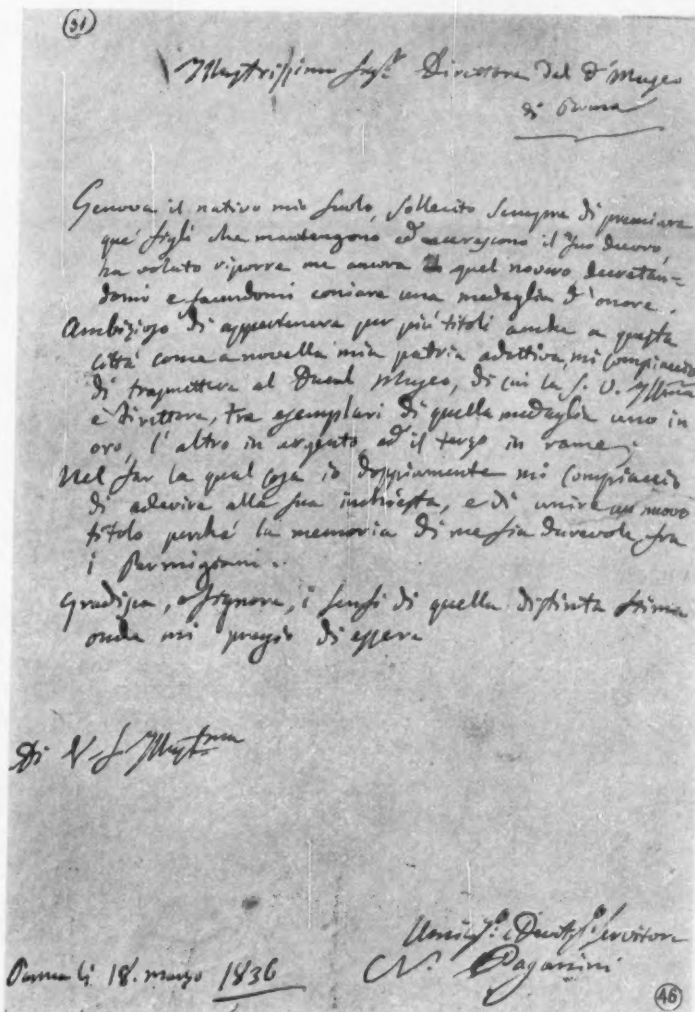 31
Illustrissimo Sigr. Direttore del D. Museo
di Parma
Genova il nativo mio suolo, sollecito sempre di premiare
que' figli che mantengono ed accrescono il suo decoro,
ha voluto riporre me ancora quel novero decretan=
domi e facendomi coniare una medaglia d'onore.
Ambizioso di appartenere per più titoli anche a questa
città come a novella mia patria adottiva, mi compiaccio
di trasmettere al Ducal Museo, di cui la S. V. Illma
è Direttore, tre esemplari di quella medaglia uno in
oro, l'altro in argento ed il terzo in rame;
Nel far la qual cosa io doppiamente mi compiaccio
di aderire alla sua inchiesta, e di unire un nuovo
titolo perché la memoria di me sia durevole fra
i Parmigiani.
Gradisca, o Signore, i sensi di quella distinta stima
onde mi pregio di essere
Di V. S. Illustma
Parma li 18. marzo 1836
Umilo. e Devoto. servitore
N. Paganini
46